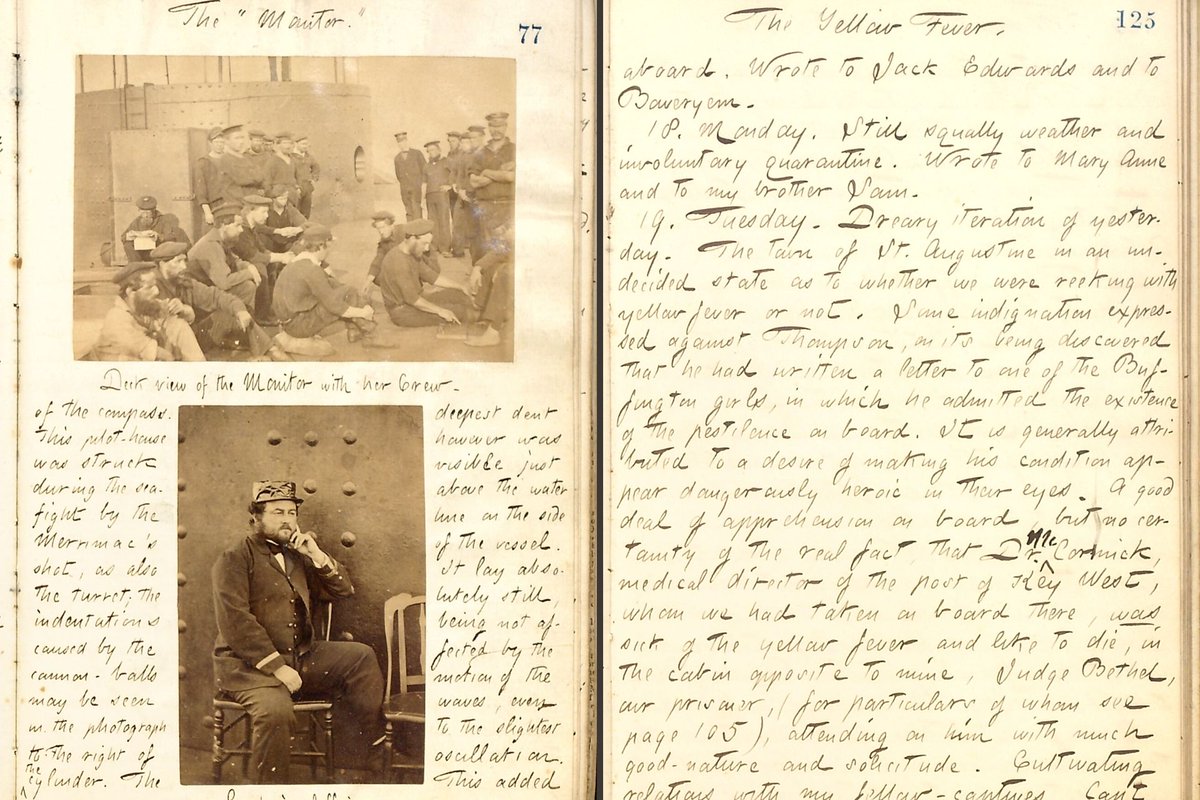 The "Monitor."
77
Deck view of the Monitor with her Crew.
of the compass.
This pilot-house
was struck
during the sea-
fight by the
Merrimac's
shot, as also
the turret, the
indentations
caused by the
cannon-balls
may be seen
in the photograph
to the right of
the cylinder. The
deepest dent
however was
visible just
above the water
line on the side
of the vessel.
It lay abso-
lutely still,
being not af-
fected by the
motion of the
waves, even
to the slightest
oscillation.
This added
The Yellow Fever.
125
aboard. Wrote to Jack Edwards and to
Boweryem.
18. Monday. Still squally weather and
involuntary quarantine. Wrote to Mary Anne
and to my brother Sam.
19. Tuesday. Dreary iteration of yester-
day. The town of St. Augustine in an un-
decided state as to whether we were reeking with
yellow fever or not. Some indignation expres-
sed against Thompson, on its being discovered
that he had written a letter to one of the Buf-
fington girls, in which he admitted the existence
of the pestilence on board. It is generally attri-
buted to a desire of making his condition ap-
pear dangerously heroic in their eyes. A good
deal of apprehension on board but no cer-
tainty of the real fact, that Dr. McCormick,
medical director of the post of Key West,
whom we had taken on board there, was
sick of the yellow fever and like to die, in
the cabin opposite to mine, Judge Bethel,
our prisoner, (for particulars of whom see
page 105), attending on him with much
good-nature and solicitude. Cultivating
relations with my fellow-captives. Cap't